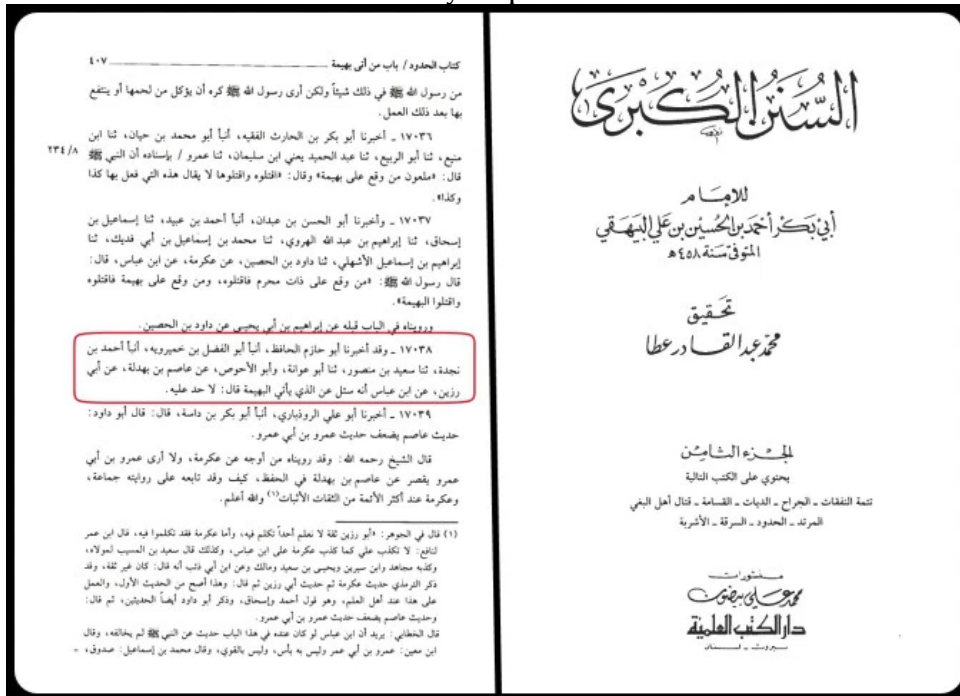 السنن الكبرى
للإمام
أبي بكر أحمد بن الحسين بن علي البيهقي
المتوفى سنة ٤٥٨ هـ
تحقيق
محمد عبد القادر عطا
الجزء الثامن
يحتوي على الكتب التالية
تتمة النفقات ـ الجراح ـ الديات ـ القسامة ـ قتال أهل البغي
المرتد ـ الحدود ـ السرقة ـ الأشربة
منشورات
محمد علي بيضون
دار الكتب العلمية
بيروت ـ لبنان
كتاب الحدود / باب من أتى بهيمة ٤٠٧
من رسول الله ﷺ في ذلك شيئاً ولكن أرى رسول الله ﷺ كره أن يؤكل من لحمها أو ينتفع
بها بعد ذلك العمل.
١٧٠٣٦ ـ أخبرنا أبو بكر بن الحارث الفقيه، أنبأ أبو محمد بن حيان، ثنا ابن
منيع، ثنا أبو الربيع، ثنا عبد الحميد يعني ابن سليمان، ثنا عمرو / بإسناده أن النبي ﷺ ٢٣٤/٨
قال: «ملعون من وقع على بهيمة» وقال: «اقتلوه واقتلوها لا يقال هذه التي فعل بها كذا
وكذا».
١٧٠٣٧ ـ وأخبرنا أبو الحسن بن عبدان، أنبأ أحمد بن عبيد، ثنا إسماعيل بن
إسحاق، ثنا إبراهيم بن عبد الله الهروي، ثنا محمد بن إسماعيل بن أبي فديك، ثنا
إبراهيم بن إسماعيل الأشهلي، ثنا داود بن الحصين، عن عكرمة، عن ابن عباس، قال:
قال رسول الله ﷺ: «من وقع على ذات محرم فاقتلوه، ومن وقع على بهيمة فاقتلوه
واقتلوا البهيمة».
ورويناه في الباب قبله عن إبراهيم بن أبي يحيى عن داود بن الحصين.
١٧٠٣٨ ـ وقد أخبرنا أبو حازم الحافظ، أنبأ أبو الفضل بن خميرويه، أنبأ أحمد بن
نجدة، ثنا سعيد بن منصور، ثنا أبو عوانة، وأبو الأحوص، عن عاصم بن بهدلة، عن أبي
رزين، عن ابن عباس أنه سئل عن الذي يأتي البهيمة قال: لا حد عليه.
١٧٠٣٩ ـ أخبرنا أبو علي الروذباري، أنبأ أبو بكر بن داسة، قال: قال أبو داود:
حديث عاصم يضعف حديث عمرو بن أبي عمرو.
قال الشيخ رحمه الله: وقد رويناه من أوجه عن عكرمة، ولا أرى عمرو بن أبي
عمرو يقصر عن عاصم بن بهدلة في الحفظ، كيف وقد تابعه على روايته جماعة،
وعكرمة عند أكثر الأئمة من الثقات الأثبات(١) والله أعلم.
(١) قال في الجوهر: «أبو رزين ثقة لا نعلم أحداً تكلم فيه، وأما عكرمة فقد تكلموا فيه، قال ابن عمر
لنافع: لا تكذب علي كما كذب عكرمة على ابن عباس، وكذلك قال سعيد بن المسيب لمولاه،
وكذبه مجاهد وابن سيرين ويحيى بن سعيد ومالك وعن ابن أبي ذئب أنه قال: كان غير ثقة، وقد
ذكر الترمذي حديث عكرمة ثم حديث أبي رزين ثم قال: وهذا أصح من الحديث الأول، والعمل
على هذا عند أهل العلم، وهو قول أحمد وإسحاق، وذكر أبو داود أيضاً الحديثين، ثم قال:
وحديث عاصم يضعف حديث عمرو بن أبي عمرو.
قال الخطابي: يريد أن ابن عباس لو كان عنده في هذا الباب حديث عن النبي ﷺ لم يخالفه، وقال
ابن معين: عمرو بن أبي عمر وليس به بأس، وليس بالقوي، وقال محمد بن إسماعيل: صدوق، =